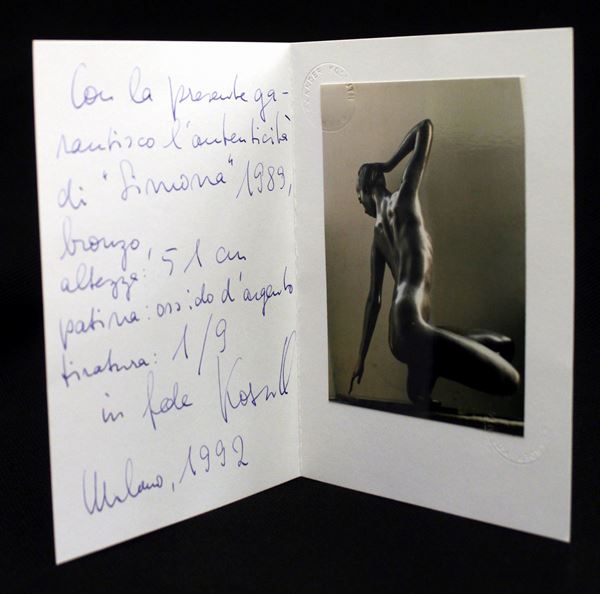 Con la presente ga-
rantisco l'autenticità
di "Simona" 1989,
bronzo,
altezza: 51 cm
patina: ossido d'argento
tiratura: 1/9
in fede
Milano, 1992